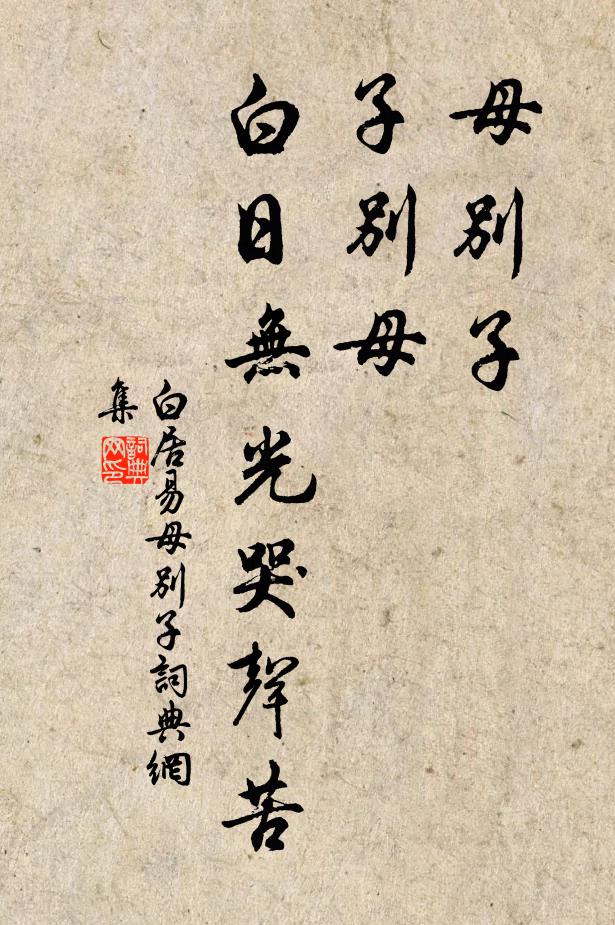 母別子
子別母
白日無光哭聲苦
白居易母別子詞典網
集
詞典
网印